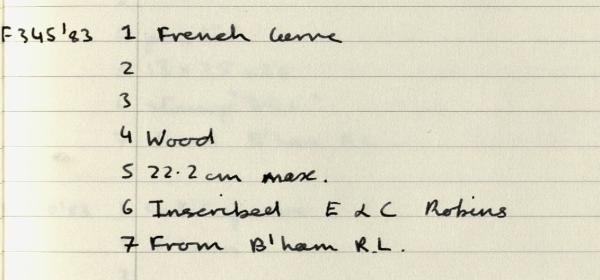 F345'83 1 French Curve
2
3
4 Wood
5 22.2 cm max.
6 Inscribed E & C Robins
7 From B'ham R.L.